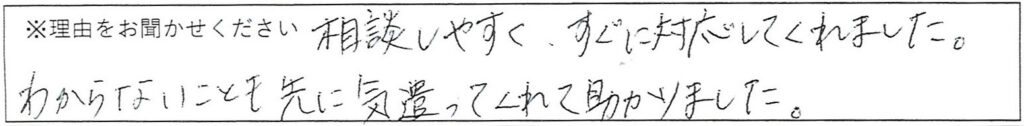 ※理由をお聞かせください 相談しやすく、すぐに対応してくれました。
わからないことも先に気遣ってくれて助かりました。